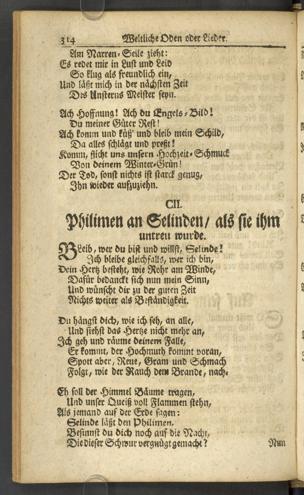 314 Weltliche Oden oder Lieder.
Am Narren-Seile zieht:
Es redet mir in Lust und Leid
So klug als freundlich ein,
Und läßt mich in der nächsten Zeit
Des Unsterns Meister seyn.
Ach Hoffnung! Ach du Engels-Bild!
Du meiner Güter Rest!
Ach komm und küß' und bleib mein Schild,
Da alles schlägt und preßt!
Komm, flicht uns unsern Hochzeit-Schmuck
Von deinem Winter-Grün!
Der Tod, sonst nichts ist starck genug,
Ihn wieder aufzuziehn.
CII.
Philimen an Selinden/ als sie ihm
untreu wurde.
Bleib, wer du bist und willst, Selinde!
Ich bleibe gleichfalls, wer ich bin,
Dein Hertz besteht, wie Rohr am Winde,
Dafür bedanckt sich nun mein Sinn,
Und wünscht dir zu der guten Zeit
Nichts weiter als Beständigkeit.
Du hängst dich, wie ich seh, an alle,
Und siehst das Hertze nicht mehr an,
Ich geh und räume deinem Falle,
Er kommt, der Hochmuth kommt voran,
Spott aber, Reue, Gram und Schmach
Folgt, wie der Rauch dem Brande, nach.
Eh soll der Himmel Bäume tragen,
Und unser Queiß voll Flammen stehn,
Als jemand auf der Erde sagen:
Selinde läßt den Philimen.
Besinnst du dich noch auf die Nacht,
Die dieser Schwur vergnügt gemacht?
Nun